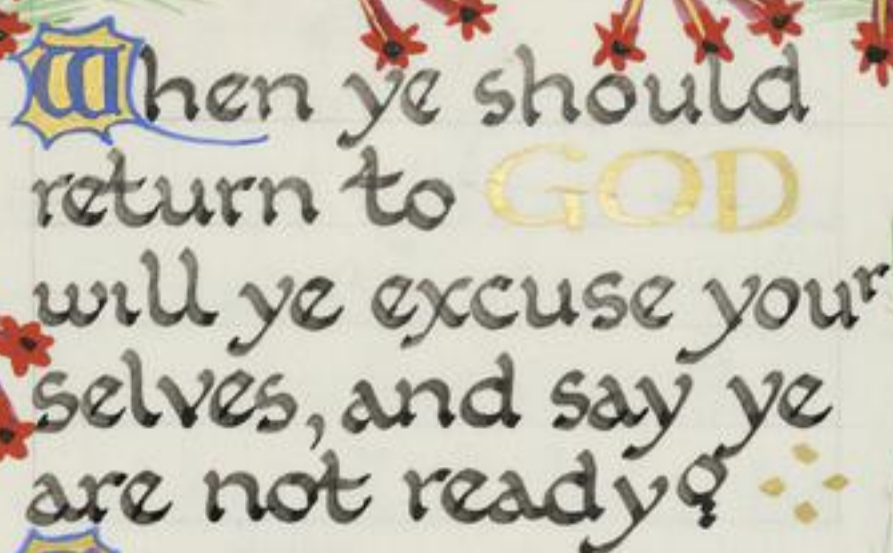 When ye should
return to GOD
will ye excuse your
selves, and say ye
are not ready?